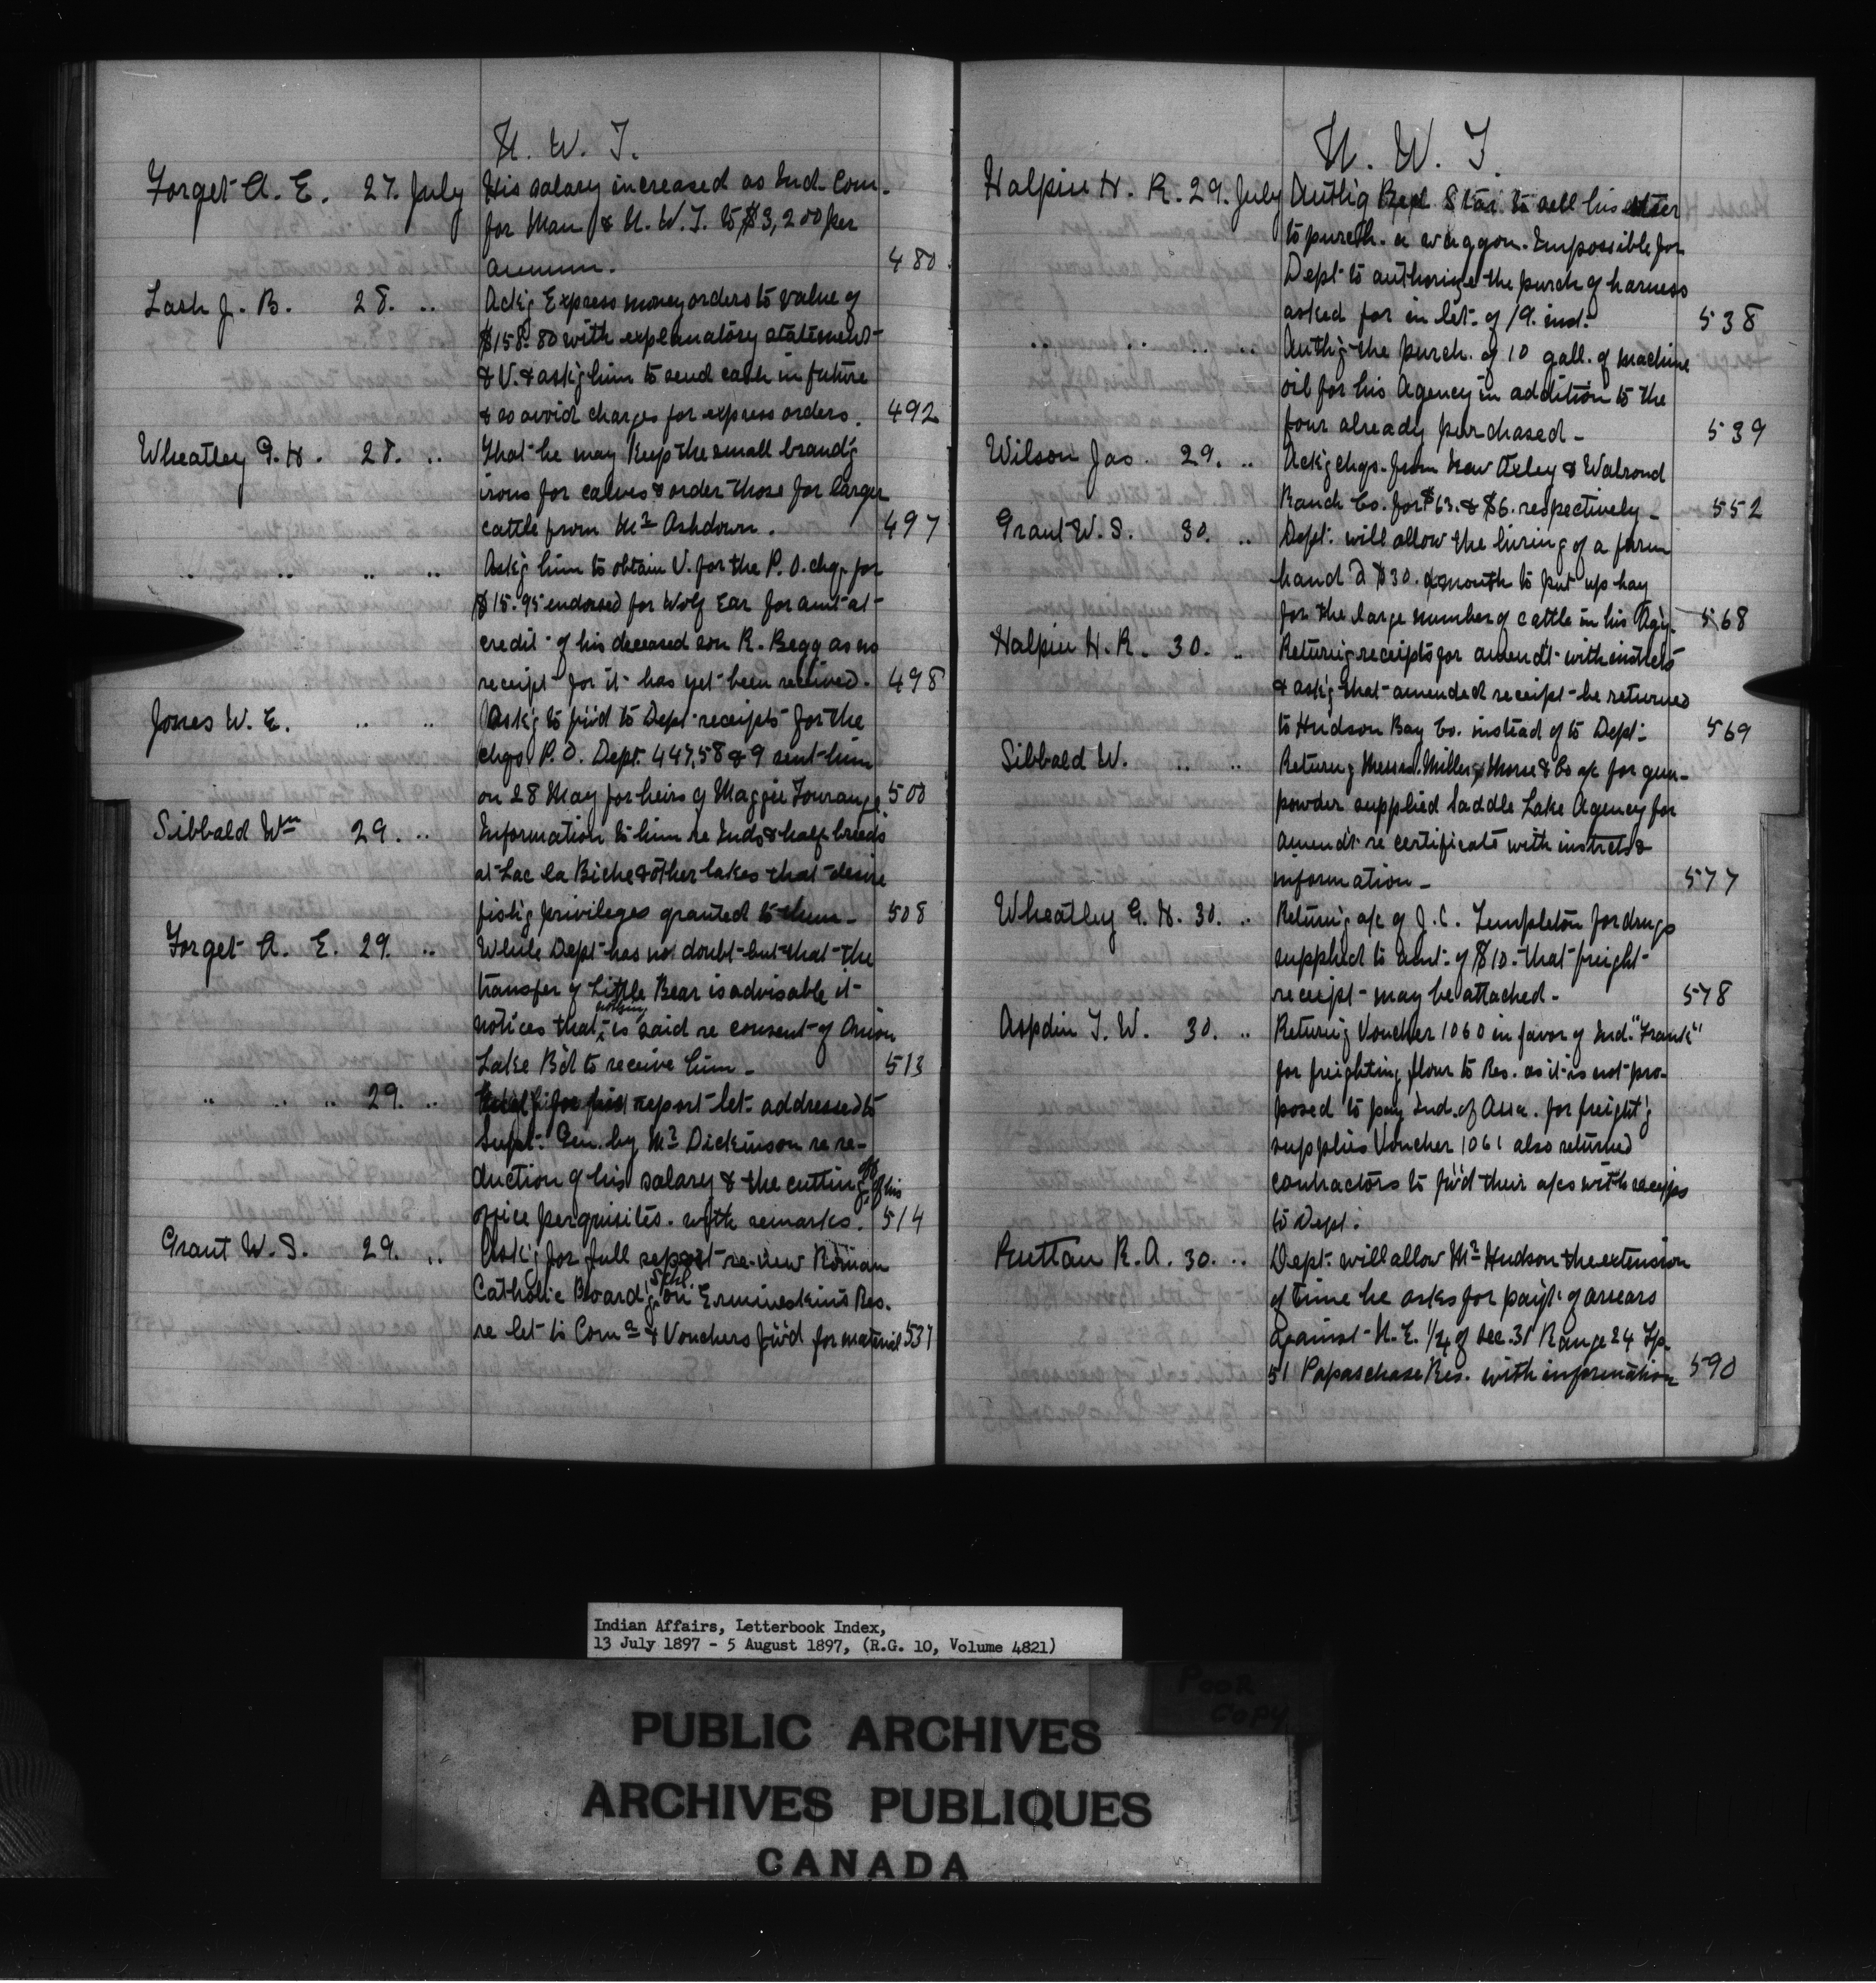 N. W. T.
Forget A. E. 27. July His salary increased as Ind. Com.
for Man & N. W. T. to $3,200 per
annum. 480
Lash J. B. 28. .. Ack'g Express money orders to value of
$158.80 with explanatory statement
& V. & ask'g him to send cash in future
& so avoid charges for express orders. 492
Wheatley G. H. 28. .. That he may keep the small brand'g
irons for calves & order those for larger
cattle from Mr Ashdown. 497
.. .. .. .. Ask'g him to obtain V. for the P. O. chq. for
$15.95 endorsed for Wolf Ear for amt at
credit of his deceased son R. Begg as no
receipt for it has yet been received. 498
Jones W. E. .. .. Ask'g to f'w'd to Dept receipts for the
chqs P. O. Dept. 447, 58 & 9 sent him
on 28 May for heirs of Maggie 500
Sibbald Wm 29. .. Information to him re Inds & half breeds
at Lac la Biche & other lakes that desire
fish'g privileges granted to them - 508
Forget A. E. 29. .. While Dept has no doubt but that the
transfer of Little Bear is advisable it
notices that nothing is said re consent of Onion
Lake B'd to receive him - 513
.. .. .. 29. .. for report let. addressed to
Supt. Gen. by Mr Dickinson re re-
duction of his salary & the cutting off of his
office perquisites. with remarks. 514
Grant W. S. 29. .. Ask'g for full report re new Roman
Catholic Board'g Schl. on Ermineskin's Res.
re let to Comr & Vouchers f'w'd for material 537
N. W. T.
Halpin H. R. 29. July Auth'g Star to sell his steer
to purch. a waggon. Impossible for
Dept to authorize the purch of harness
asked for in let. of 19. inst. 538
.. .. .. .. Auth'g the purch. of 10 gall. of machine
oil for his Agency in addition to the
four already purchased - 539
Wilson Jas. 29. .. Ack'g chqs. from New Oxley & Walrond
Ranch Co. for $63. & $6. respectively - 552
Grant W. S. 30. .. Dept. will allow the hiring of a farm
hand @ $30. a month to put up hay
for the large number of cattle in his Agy. 568
Halpin H. R. 30. .. Return'g receipts for amend't with instrcts
& ask'g that amended receipt be returned
to Hudson Bay Co. instead of to Dept. 569
Sibbald W. .. .. Return'g Messrs. Miller, Morse & Co a/c for gun-
powder supplied Saddle Lake Agency for
amend't re certificate with instrcts &
information - 577
Wheatley G. H. 30. .. Return'g a/c of J. C. Templeton for drugs
supplied to amt. of $10. that freight
receipt may be attached - 578
Aspdin T. W. 30. .. Return'g Voucher 1060 in favor of Ind. "Frank"
for freighting flour to Res. as it is not pro-
posed to pay Ind. of Assa. for freight'g
supplies Voucher 1061 also returned
contractors to f'w'd their a/cs with receipts
to Dept.
Ruttan R. A. 30. .. Dept. will allow Mr Hudson the extension
of time he asks for pay't. of arrears
against N. E. 1/4 of Sec. 31 Range 24 Tp.
51 Papaschase Res. with information 590
Indian Affairs, Letterbook Index,
13 July 1897 - 5 August 1897, (R.G. 10, Volume 4821)
POOR
COPY
PUBLIC ARCHIVES
ARCHIVES PUBLIQUES
CANADA